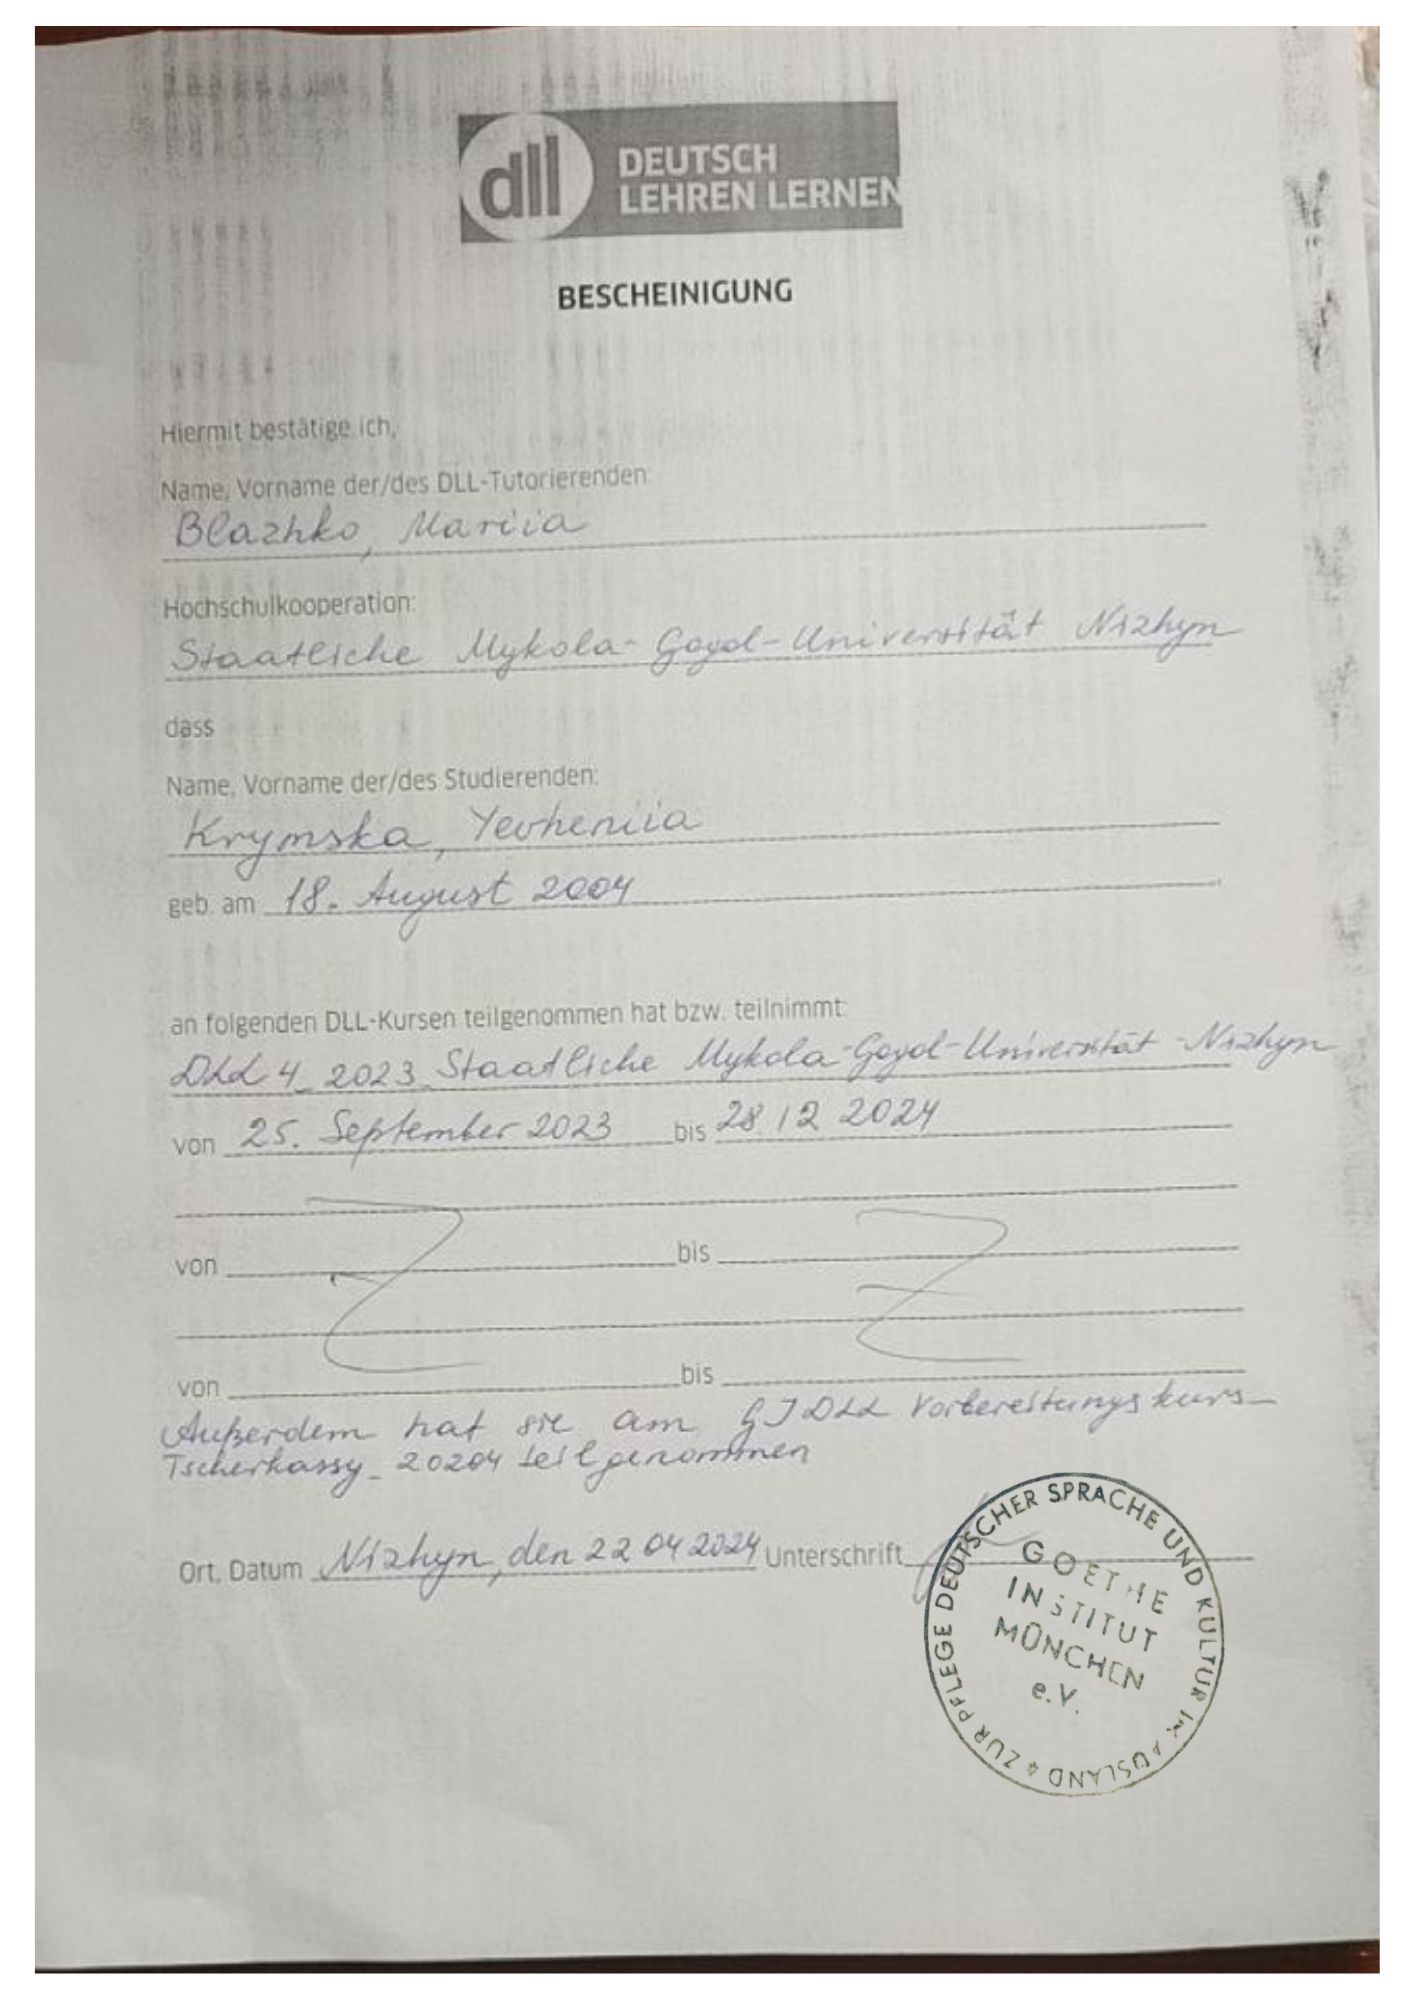 dll
DEUTSCH
LEHREN LERNEN
BESCHEINIGUNG
Hiermit bestätige ich,
Name, Vorname der/des DLL-Tutorierenden:
Blazhko, Mariia
Hochschulkooperation:
Staatliche Mykola-Gogol-Universität Nizhyn
dass
Name, Vorname der/des Studierenden:
Krymska, Yevheniia
geb. am 18. August 2004
an folgenden DLL-Kursen teilgenommen hat bzw. teilnimmt:
DLL 4_2023_Staatliche Mykola-Gogol-Universität-Nizhyn
von 25. September 2023 bis 28 12 2024
von bis
von bis
Außerdem hat sie am GI DLL Vorbereitungskurs-
Tscherkassy_20204 teilgenommen
Ort, Datum Nizhyn, den 22 04 2024 Unterschrift
ZUR PFLEGE DEUTSCHER SPRACHE UND KULTUR IM AUSLAND
GOETHE
INSTITUT
MÜNCHEN
e.V.